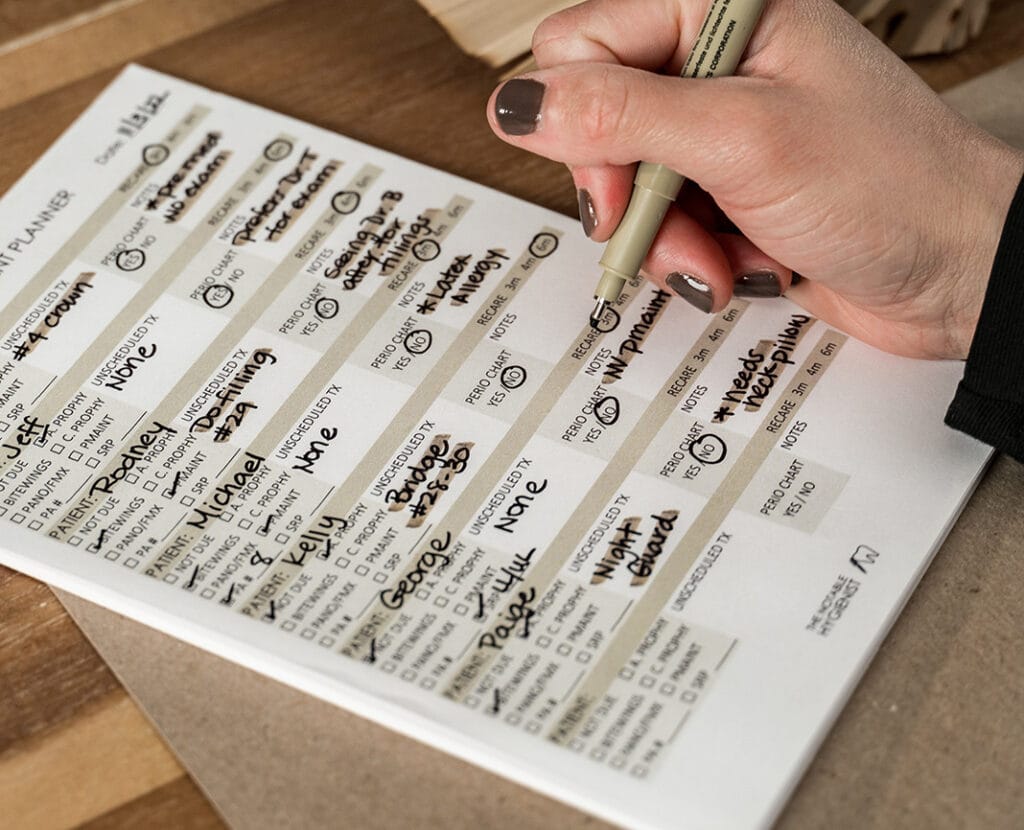 NT PLANNER
Date: 11/3/22
Jeff
NOT DUE
BITEWINGS
PANO/FMX
PA #
PROPHY
C. PROPHY
PMAINT
SRP
UNSCHEDULED TX
#4 crown
PERIO CHART
YES / NO
NOTES
*premed
NO exam
RECARE 3m 4m 6m
PATIENT: Rodney
NOT DUE
BITEWINGS
PANO/FMX
PA #
A. PROPHY
C. PROPHY
PMAINT
SRP
UNSCHEDULED TX
None
PERIO CHART
YES / NO
NOTES
prefers Dr T
for exam
RECARE 3m 4m 6m
PATIENT: Michael
NOT DUE
BITEWINGS
PANO/FMX
PA # 8
A. PROPHY
C. PROPHY
PMAINT
SRP
UNSCHEDULED TX
Do filling
#29
PERIO CHART
YES / NO
NOTES
Seeing Dr. B
after for
fillings
RECARE 3m 4m 6m
PATIENT: Kelly
NOT DUE
BITEWINGS
PANO/FMX
PA #
PROPHY
C. PROPHY
PMAINT
SRP
UNSCHEDULED TX
None
PERIO CHART
YES / NO
NOTES
* Latex
Allergy
RECARE 3m 4m 6m
PATIENT: George
NOT DUE
BITEWINGS
PANO/FMX
PA #
A. PROPHY
C. PROPHY
PMAINT
SRP
UNSCHEDULED TX
Bridge
#28-30
PERIO CHART
YES / NO
NOTES
RECARE 3m 4m 6m
Lulu
UNSCHEDULED TX
None
PERIO CHART
YES / NO
NOTES
N pmaint
RECARE 3m 4m 6m
PATIENT: Paige
NOT DUE
BITEWINGS
PANO/FMX
PA #
A. PROPHY
C. PROPHY
PMAINT
SRP
UNSCHEDULED TX
Night
Guard
PERIO CHART
YES / NO
NOTES
* needs
neck pillow
RECARE 3m 4m 6m
PATIENT:
NOT DUE
BITEWINGS
PANO/FMX
PA #
A. PROPHY
C. PROPHY
PMAINT
SRP
UNSCHEDULED TX
PERIO CHART
YES / NO
NOTES
RECARE 3m 4m 6m
THE NOTABLE
HYGIENIST
CORPORATION